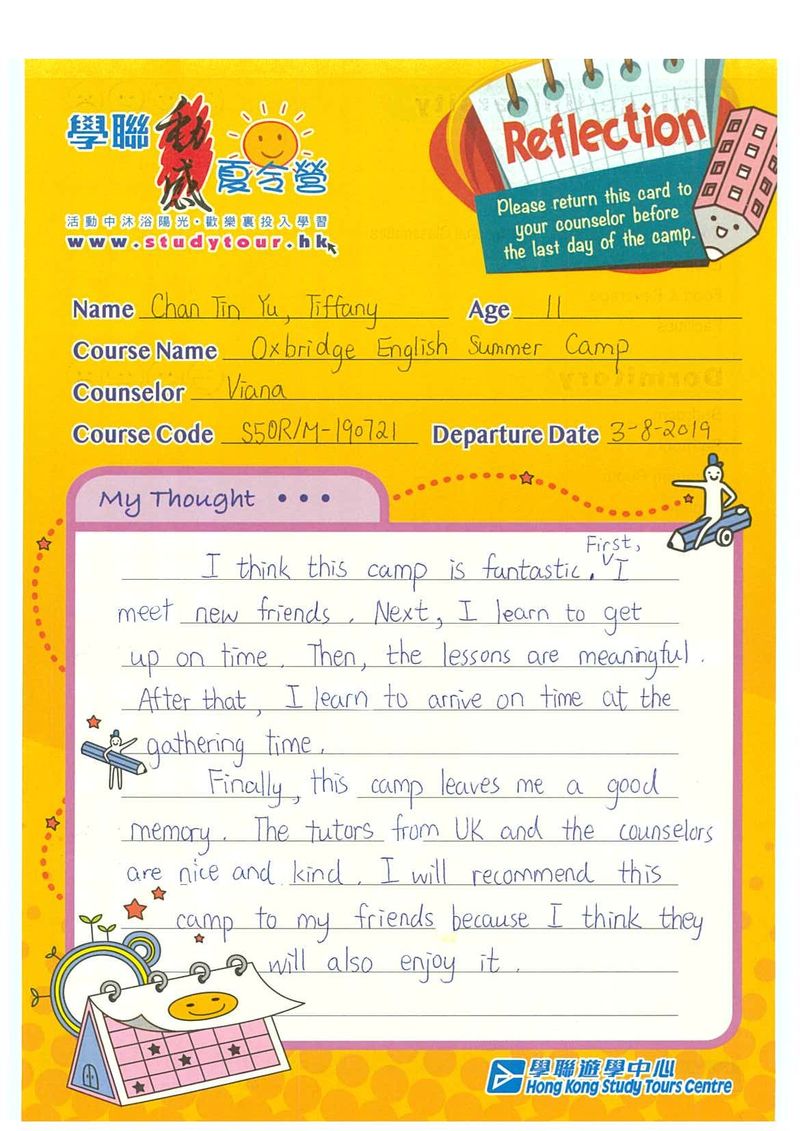 學聯 動感 夏令營
活動中沐浴陽光・歡樂裏投入學習
www.studytour.hk
Reflection
Please return this card to
your counselor before
the last day of the camp.
Name Chan Tin Yu, Tiffany Age 11
Course Name Oxbridge English Summer Camp
Counselor Viana
Course Code S50R/M-190721 Departure Date 3-8-2019
My Thought • • •
I think this camp is funtastic. First, I
meet new friends. Next, I learn to get
up on time. Then, the lessons are meaningful.
After that, I learn to arrive on time at the
gathering time.
Finally, this camp leaves me a good
memory. The tutors from UK and the counselors
are nice and kind. I will recommend this
camp to my friends because I think they
will also enjoy it.
學聯遊學中心
Hong Kong Study Tours Centre